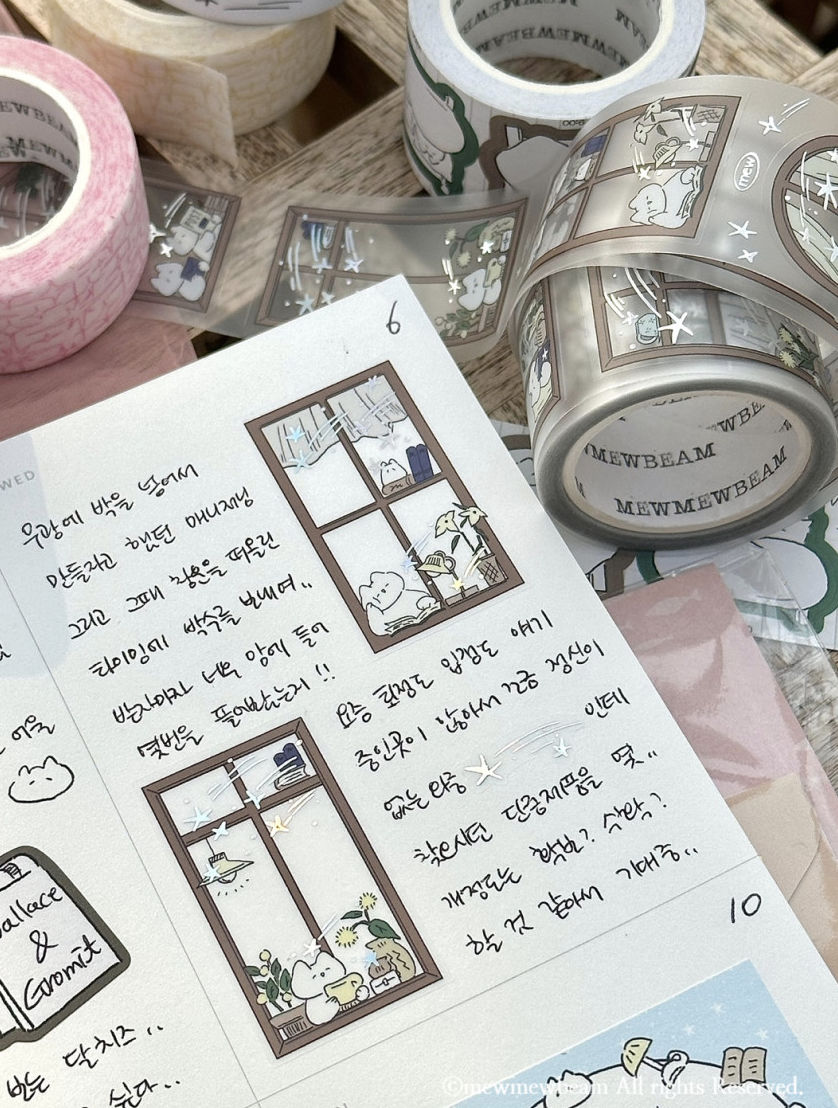 MEWMEWBEAM
mew
MEWMEWBEAM
MEWMEWBEAM
6
WED
우랑에 박을 넣어서
만들라고 했던 매니저님
그리고 그때 상황을 떠올린
타이밍에 박수를 보내며..
받자마자 너무 앞에 들어
몇번을 풀어봤는지!!
요즘 회정도 입점도 얘기
중인곳이 많아서 조금 정신이
없는 와중
인데
찾으시던 단종제품을 몇..
개정도는
할 것 같아서 기대중..
Wallace
&
Gromit
달 치즈..
10
©mewmewbeam All rights Reserved.